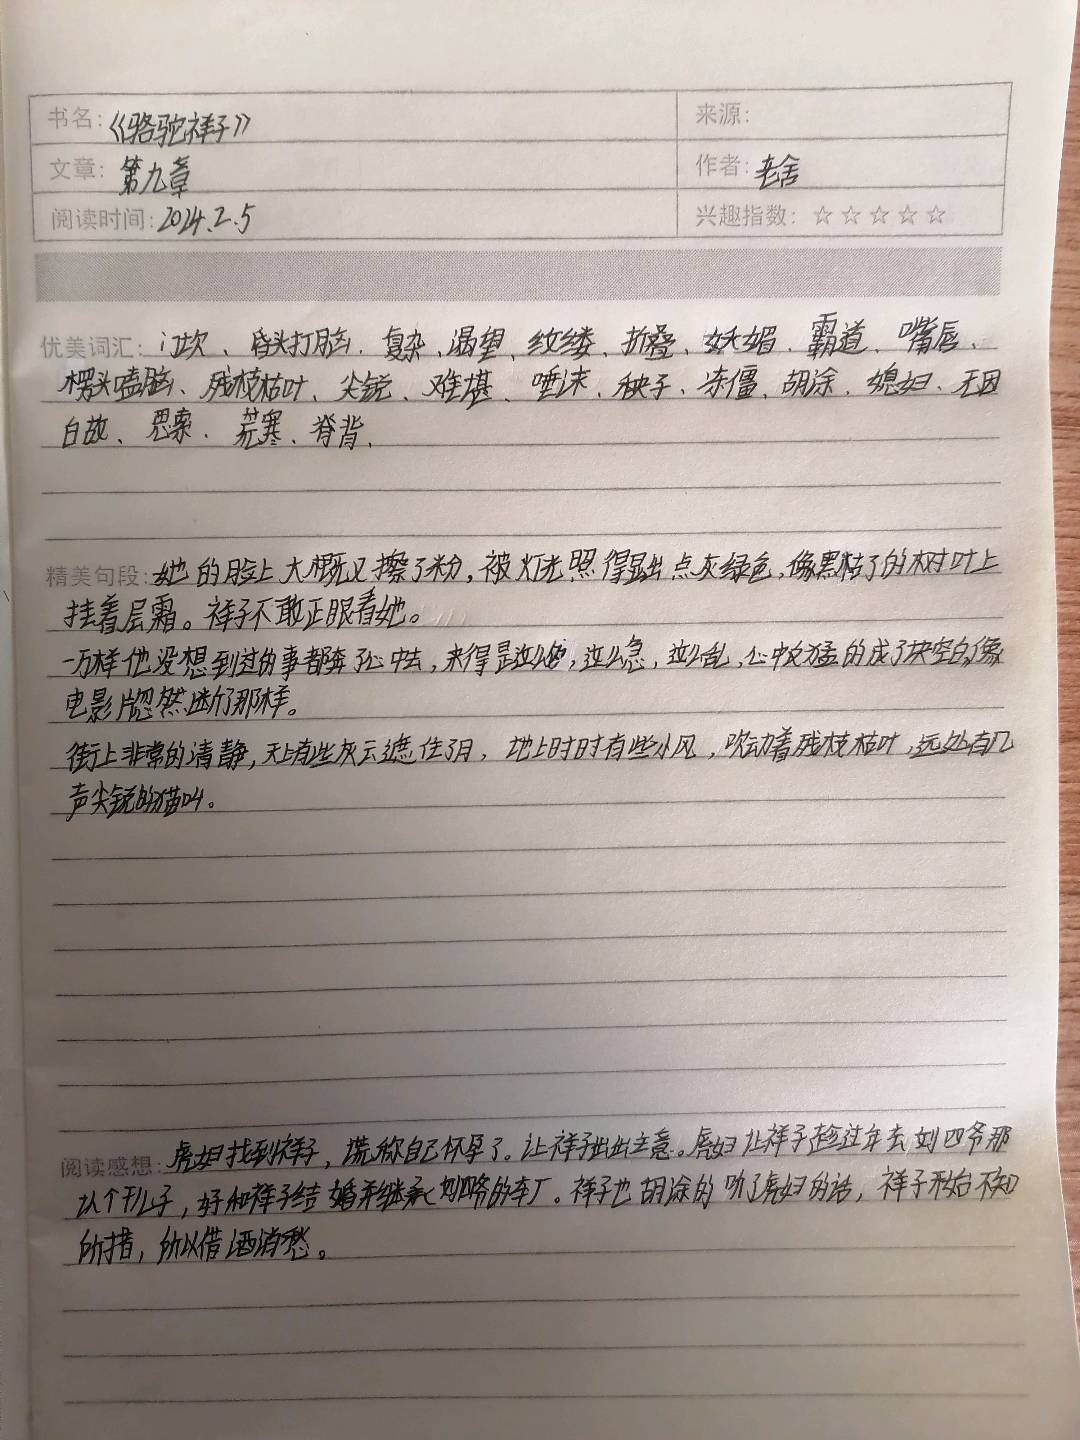 书名:《骆驼祥子》 来源:
文章: 第九章 作者: 老舍
阅读时间: 2024.2.5 兴趣指数: ☆☆☆☆☆
优美词汇: 门坎、昏头打脑、复杂、渴望、纹缕、折叠、妖媚、霸道、嘴唇、
楞头磕脑、残枝枯叶、尖锐、难堪、唾沫、秧子、冻僵、胡涂、媳妇、无因
白故、思索、荒寒、脊背、
精美句段: 她的脸上大概又擦了粉,被灯光照得显出点灰绿色,像黑枯了的树叶上
挂着层霜。祥子不敢正眼看她。
一万样他没想到过的事都奔了心中去,来得是这么,这么急,这么乱,心中猛的成了块空白,像
电影片忽然断了那样。
街上非常的清静,天上有些灰云遮住了月,地上时时有些小风,吹动着残枝枯叶,远处有几
声尖锐的猫叫。
阅读感想: 虎妞找到祥子,谎称自己怀孕了。让祥子出出主意。虎妞让祥子趁过年去刘四爷那
认个干儿子,好和祥子结婚来继承刘四爷的车厂。祥子也胡涂的听了虎妞的话,祥子不知
所措,所以借酒消愁。